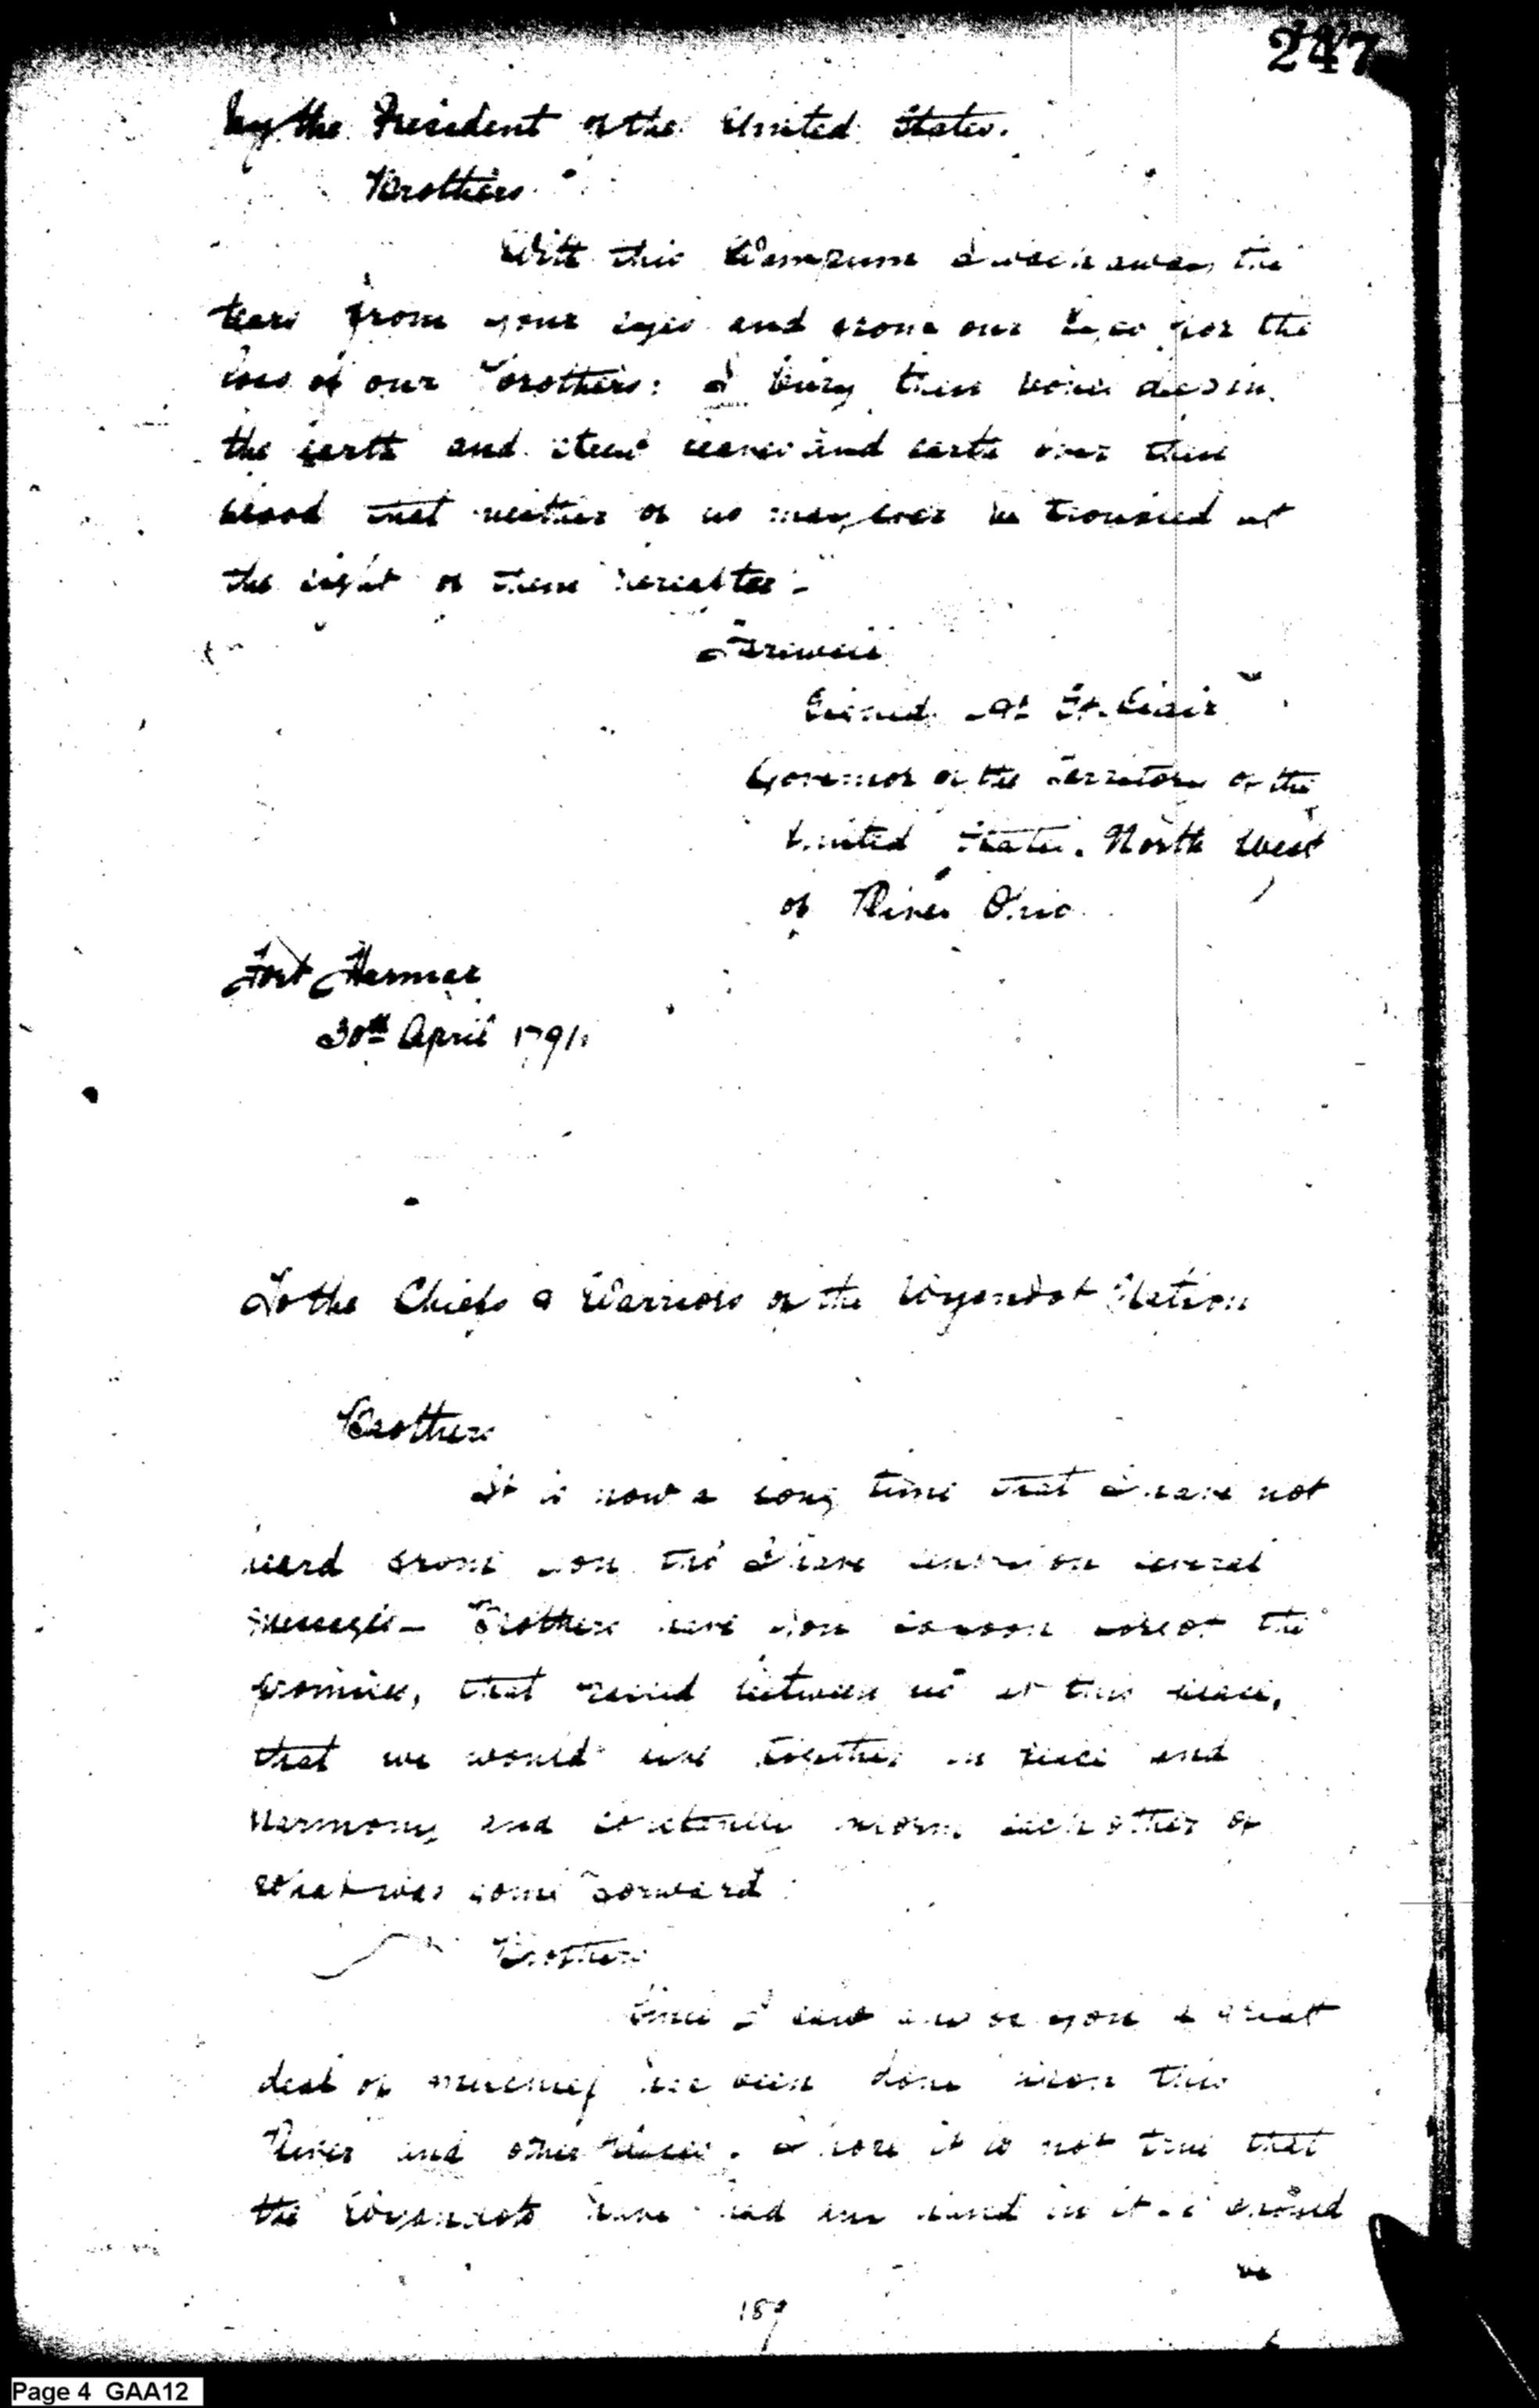 247
by the President of the United States.
Brothers
With this Wampum I wash away the
tears from your eyes and from our Eyes for the
loss of our Brothers: I bury their bones deep in
the earth and strew leaves and earth over their
blood that neither of us may ever be troubled at
the sight of them hereafter.—
Farewell
Signed Ar St. Clair
Governor of the Territory of the
United States. North West
of River Ohio
Fort Harmar
30th April 1791.
To the Chiefs & Warriors of the Wyandot Nation
Brothers
It is now a long time that I have not
heard from you tho' I have sent you several
messages— Brothers have you so soon forgot the
promises, that passed between us at this place,
that we would live together in peace and
Harmony and constantly inform each other of
what was going forward
Brothers
Since I saw any of you a great
deal of mischief has been done upon this
River and other places. I hope it is not true that
the Wyandots have had any hand in it. I should
be
189
Page 4 GAA12